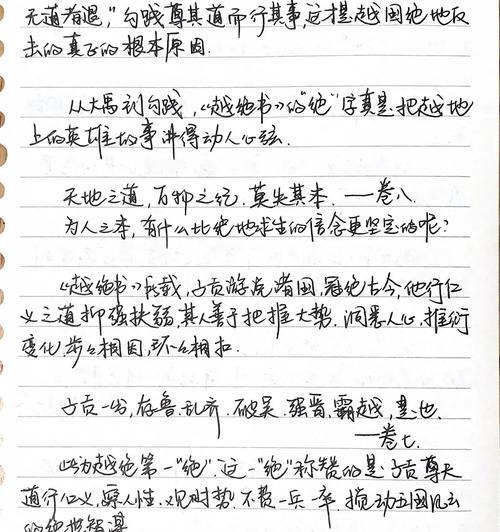 无道者退,"勾践尊其道而行其事,这才是越国绝地反
击的真正的根本原因.
从大禹到勾践,《越绝书》的"绝"字真是把越地
上的英雄故事讲得动人心弦.
天地之道,万物之纪.莫失其本.——卷八.
为人之本,有什么比绝地求生的信念更坚定的呢?
《越绝书》所载,子贡游说诸国,冠绝古今,他行仁
义之道抑强扶弱,其人善于把握大势.洞悉人心,推衍
变化,步步相因,环环相扣.
子贡一出,存鲁.乱齐.破吴.强晋.霸越,是也.
——卷七.
此为越绝第一"绝".这一"绝"称赞的是子贡尊天
道行仁义,察人性,观时势.不费一兵一卒,搅动五国风云
的绝世智谋